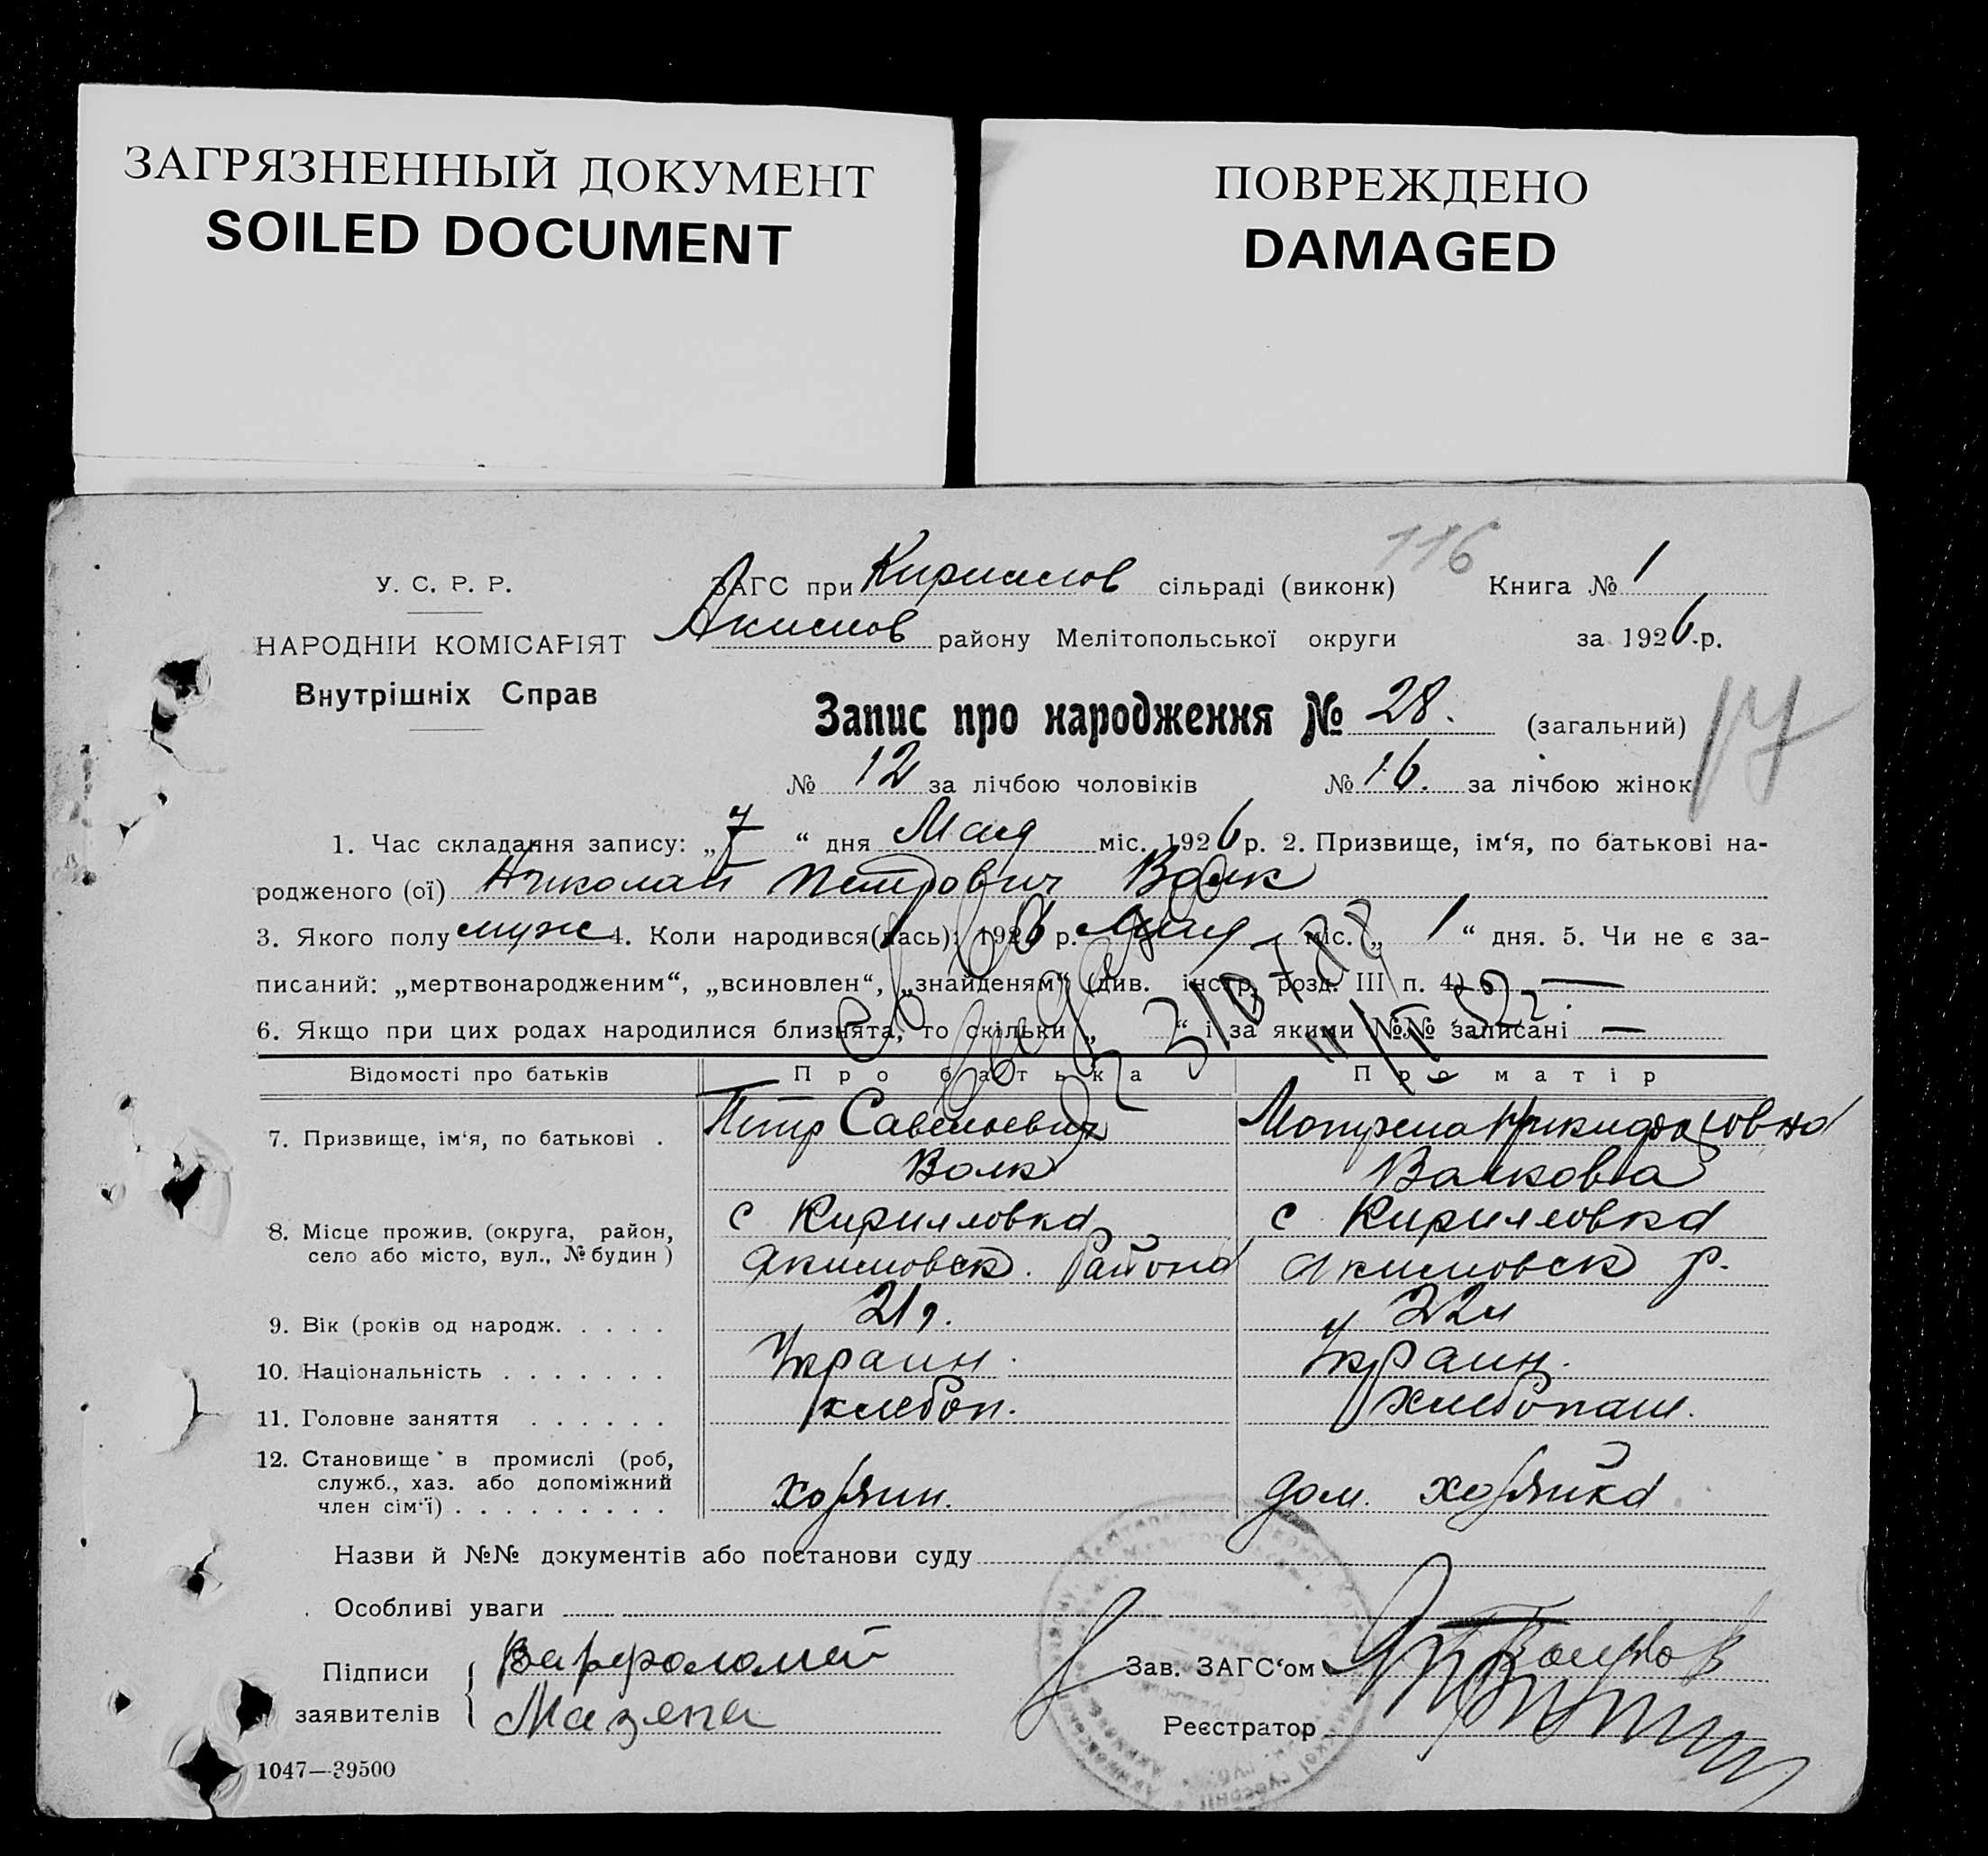 ЗАГРЯЗНЕННЫЙ ДОКУМЕНТ
SOILED DOCUMENT
ПОВРЕЖДЕНО
DAMAGED
116
У. С. Р. Р.
ЗАГС при Кириллов сільраді (виконк) Книга № 1
Акимов району Мелітопольської округи за 1926 р.
НАРОДНІЙ КОМІСАРІЯТ
Внутрішніх Справ
Запис про народження № 28. (загальний)
17
№ 12 за лічбою чоловіків № 16. за лічбою жінок
1. Час складання запису: „7“ дня Мая міс. 1926 р. 2. Призвище, ім'я, по батькові на-
родженого (ої) Николай Петрович Волк
3. Якого полу муж 4. Коли народився(лась): 1926 р. Мая міс. „ 1 “ дня. 5. Чи не є за-
писаний: „мертвонародженим“, „всиновлен“, „знайденям“ (див. інстр. розд. III п. 4) —
6. Якщо при цих родах народилися близнята, то скільки „ “ і за якими №№ записані —
Відомості про батьків Про батька Про матір
7. Призвище, ім'я, по батькові . Петр Савельевич Мотрена Никифоровна
Волк Волкова
8. Місце прожив. (округа, район, с Кирилловка с Кирилловка
село або місто, вул., № будин ) Акимовск. Района Акимовск р.
9. Вік (років од народж. . . . . 21 г. 22
10. Національність . . . . . . . Украин. Украин.
11. Головне заняття . . . . . . хлебоп. хлебопаш.
12. Становище в промислі (роб,
служб., хаз. або допоміжний
член сім'ї) . . . . . . . . . хозяин. дом. хозяйка
Назви й №№ документів або постанови суду
Особливі уваги
Підписи Варфоломей Зав. ЗАГС'ом
заявителів Мазепа Реєстратор
1047—39500